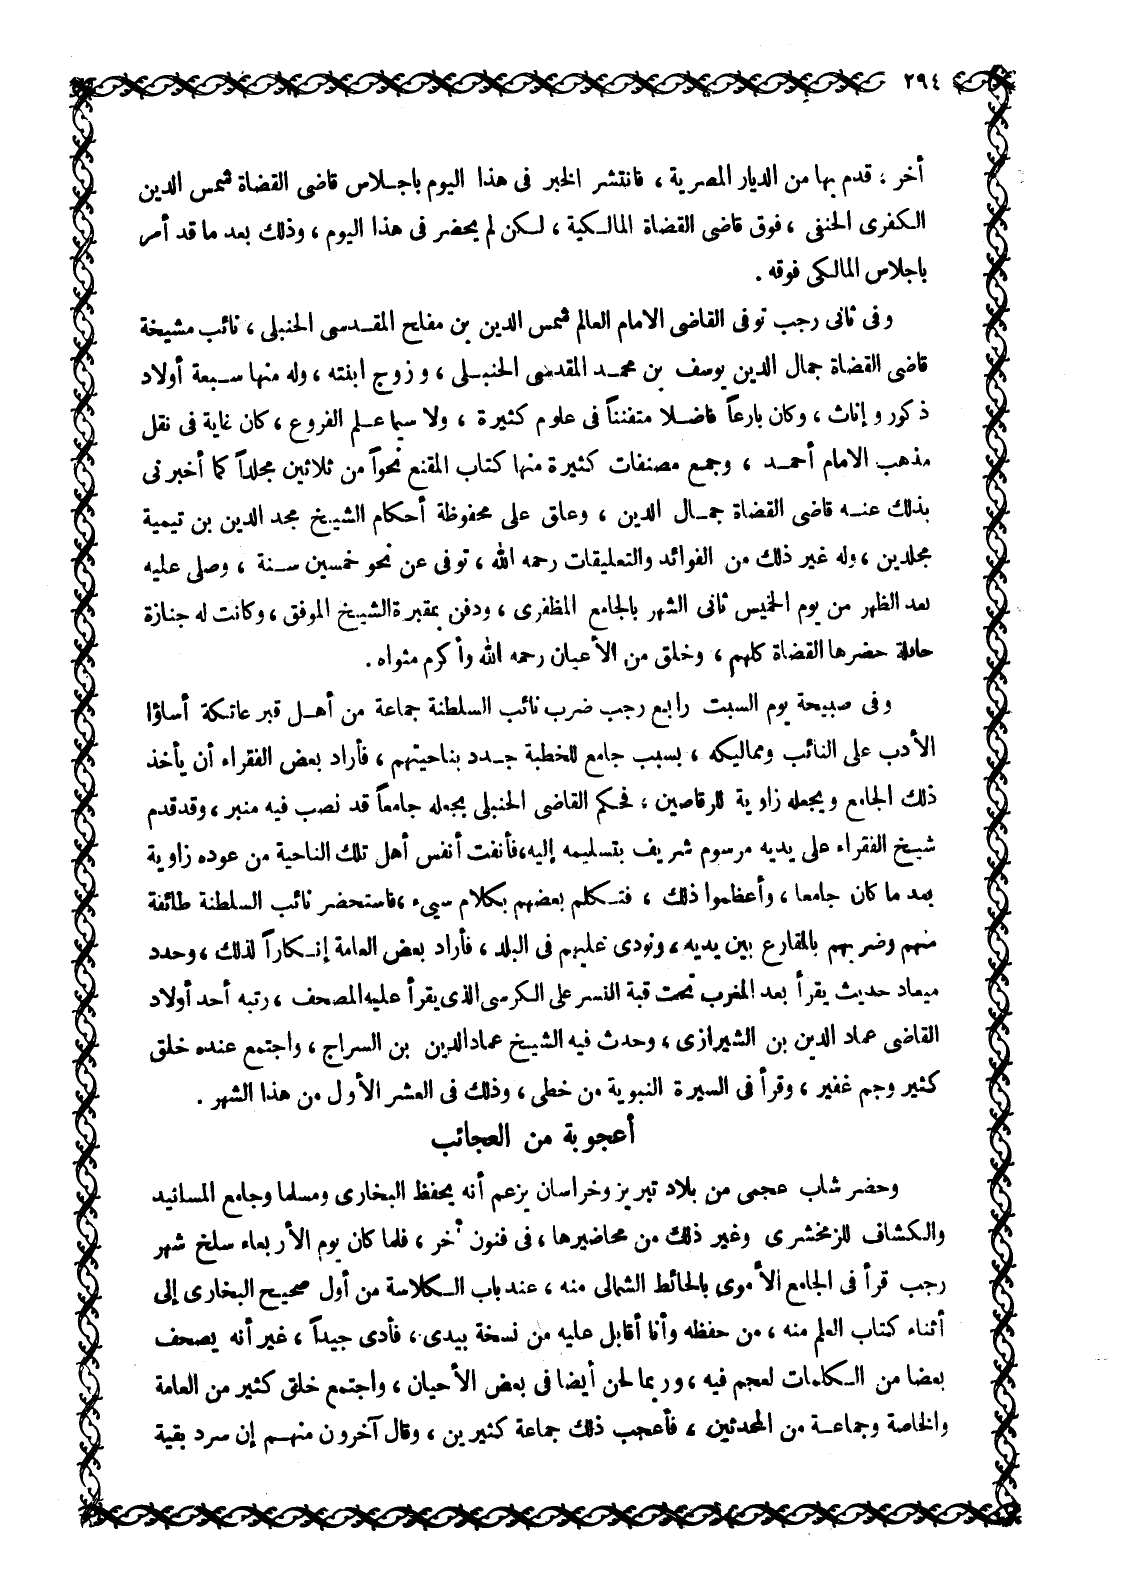 ٢٩٤
أخر ، قدم بها من الديار المصرية ، فانتشر الخبر فى هذا اليوم باجلاس قاضى القضاة شمس الدين
الكفرى الحنفى ، فوق قاضى القضاة المالكية ، لكن لم يحضر فى هذا اليوم ، وذلك بعد ما قد أمر
باجلاس المالكى فوقه .
وفى ثانى رجب توفى القاضى الامام العالم شمس الدين بن مفلح المقدسى الحنبلى ، نائب مشيخة
قاضى القضاة جمال الدين يوسف بن محمد المقدسى الحنبلى ، وزوج ابنته ، وله منها سبعة أولاد
ذكور وإناث ، وكان بارعاً فاضلا متفنناً فى علوم كثيرة ، ولا سيما علم الفروع ، كان غاية فى نقل
مذهب الامام أحمد ، وجمع مصنفات كثيرة منها كتاب المقنع نحواً من ثلاثين مجلداً كما أخبرنى
بذلك عنه قاضى القضاة جمال الدين ، وعلق على محفوظة أحكام الشيخ مجد الدين بن تيمية
مجلدين ، وله غير ذلك من الفوائد والتعليقات رحمه الله ، توفى عن نحو خمسين سنة ، وصلى عليه
بعد الظهر من يوم الخميس ثانى الشهر بالجامع المظفرى ، ودفن بمقبرة الشيخ الموفق ، وكانت له جنازة
حافلة حضرها القضاة كلهم ، وخلق من الأعيان رحمه الله وأكرم مثواه .
وفى صبيحة يوم السبت رابع رجب ضرب نائب السلطنة جماعة من أهل قبر عاتكة أساؤا
الأدب على النائب ومماليكه ، بسبب جامع للخطبة جدد بناحيتهم ، فأراد بعض الفقراء أن يأخذ
ذلك الجامع ويجعله زاوية للرقاصين ، فحكم القاضى الحنبلى بجعله جامعاً قد نصب فيه منبر ، وقد قدم
شيخ الفقراء على يديه مرسوم شريف بتسليمه إليه ، فأنفت أنفس أهل تلك الناحية من عوده زاوية
بعد ما كان جامعا ، وأعظموا ذلك ، فتكلم بعضهم بكلام سيىء ، فاستحضر نائب السلطنة طائفة
منهم وضربهم بالمقارع بين يديه ، ونودى عليهم فى البلد ، فأراد بعض العامة إنكاراً لذلك ، وحدد
ميعاد حديث يقرأ بعد المغرب تحت قبة النسر على الكرسى الذى يقرأ عليه المصحف ، رتبه أحد أولاد
القاضى عماد الدين بن الشيرازى ، وحدث فيه الشيخ عماد الدين بن السراج ، واجتمع عنده خلق
كثير وجم غفير ، وقرأ فى السيرة النبوية من خطى ، وذلك فى العشر الأول من هذا الشهر .
أعجوبة من العجائب
وحضر شاب عجمى من بلاد تبريز وخراسان يزعم أنه يحفظ البخارى ومسلما وجامع المسانيد
والكشاف للزمخشرى وغير ذلك من محاضيرها ، فى فنون أخر ، فلما كان يوم الأربعاء سلخ شهر
رجب قرأ فى الجامع الأموى بالحائط الشمالى منه ، عند باب الكلاسة من أول صحيح البخارى إلى
أثناء كتاب العلم منه ، من حفظه وأنا أقابل عليه من نسخة بيدى ، فأدى جيداً ، غير أنه يصحف
بعضا من الكلمات لعجم فيه ، وربما لحن أيضا فى بعض الأحيان ، واجتمع خلق كثير من العامة
والخاصة وجماعة من المحدثين ، فأعجب ذلك جماعة كثيرين ، وقال آخرون منهم إن سرد بقية